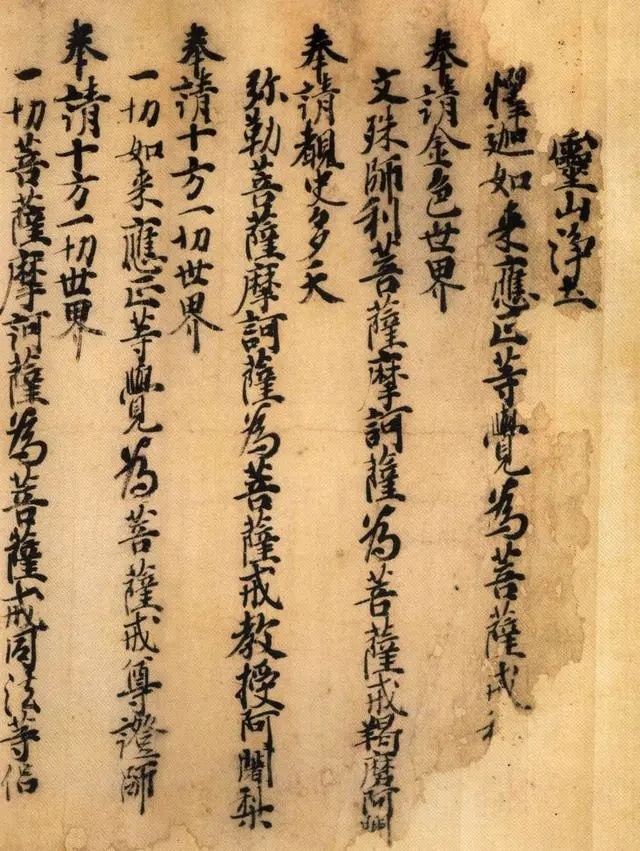 靈山浄土
釋迦如来應正等覺為菩薩戒
奉請金色世界
文殊師利菩薩摩訶薩為菩薩戒羯磨阿闍
奉請覩史多天
弥勒菩薩摩訶薩為菩薩戒教授阿闍梨
奉請十方一切世界
一切如来應正等覺為菩薩戒尊證師
奉請十方一切世界
一切菩薩摩訶薩為菩薩戒同法等侣